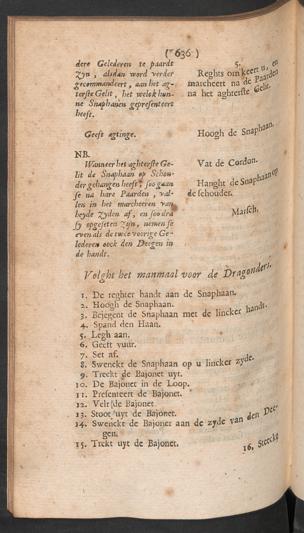 ( 636 )
dere Gelederen te paardt
zyn, alsdan word verder
gecommandeert, aan het ag-
terste Gelit, het welck hun-
ne Snaphanen gepresenteert
heeft.
Geeft agtinge.
NB.
Wanneer het aghterste Ge-
lit de Snaphaan op Schou-
der gehangen heeft, soo gaan
se na hare Paarden, val-
len in het marcheeren van
beyde zyden af, en soodra
sy opgeseten zyn, nemen se
even als de twee voorige Ge-
lederen oock den Deegen in
de handt.
5.
Reghts om keert u, en
marcheert na de Paarden
na het aghterste Gelit.
Hoogh de Snaphaan.
Vat de Cordon.
Hanght de Snaphaan op
de schouder.
Marsch,
Volght het manmaal voor de Dragonders.
1. De reghter handt aan de Snaphaan.
2. Hoogh de Snaphaan.
3. Bejegent de Snaphaan met de lincker handt.
4. Spand den Haan.
5. Legh aan.
6. Geeft vuur.
7. Set af.
8. Swenckt de Snaphaan op u lincker zyde.
9. Treckt de Bajonet uyt.
10. De Bajonet in de Loop.
11. Presenteert de Bajonet.
12. Velt de Bajonet
13. Stoot uyt de Bajonet.
14. Swenckt de Bajonet aan de zyde van den Dee-
gen.
15. Trekt uyt de Bajonet.
16. Steeckt